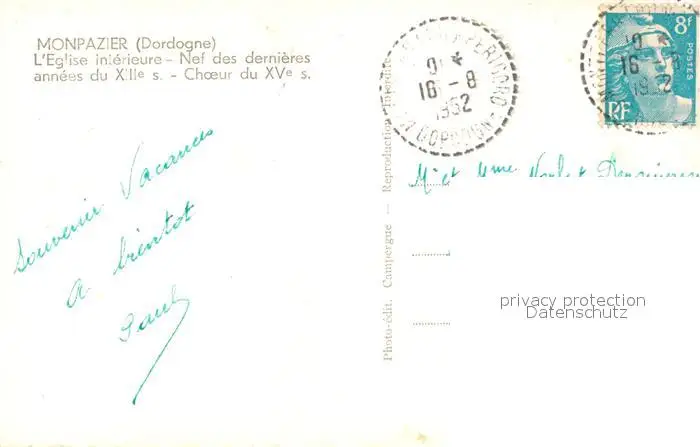 MONPAZIER (Dordogne)
L'Eglise intérieure - Nef des dernières
années du XIIIe s. - Chœur du XVe s.
Souvenir Vacances
A bientot
Paul
Photo-édit. Campergue - Reproduction Interdite
16 - 8
1952
DORDOGNE
8F
POSTES
RF
16 - 8
1952
M. et Mme
privacy protection
Datenschutz